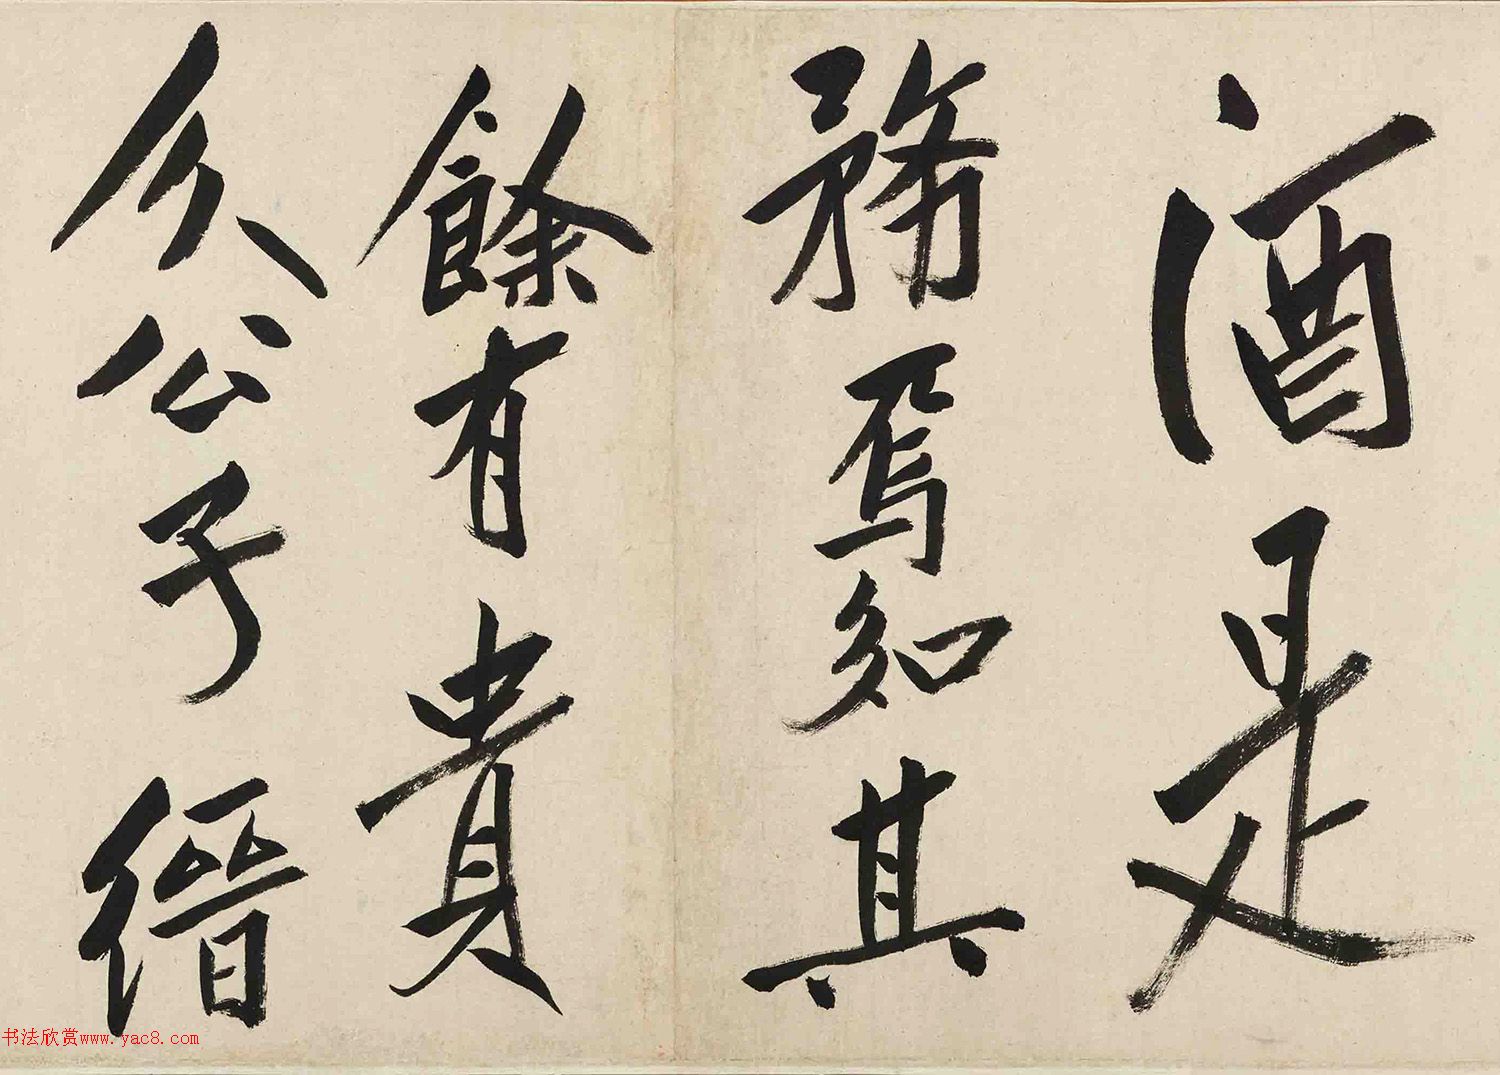 酒是
務焉知其
餘有貴
介公子縉
书法欣赏www.yac8.com